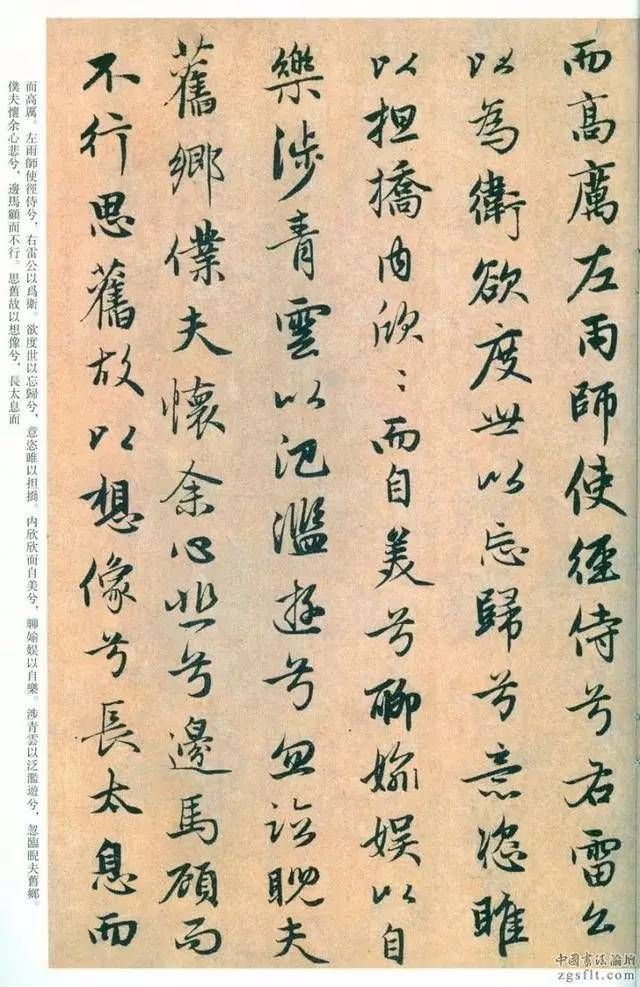 而高厲左雨師使徑侍兮右雷公
以為衛欲度世以忘歸兮意恣睢
以担撟内欣〻而自美兮聊媮娱以自
樂涉青雲以汜濫遊兮忽臨睨夫
舊鄉僕夫懷余心悲兮邊馬顧而
不行思舊故以想像兮長太息而
而高厲。左雨師使徑侍兮，右雷公以爲衛。欲度世以忘歸兮，意恣睢以担撟。内欣欣而自美兮，聊媮娱以自樂。涉青雲以泛濫遊兮，忽臨睨夫舊鄉。
僕夫懷余心悲兮，邊馬顧而不行。思舊故以想像兮，長太息而
中國書法論壇
zgsflt.com